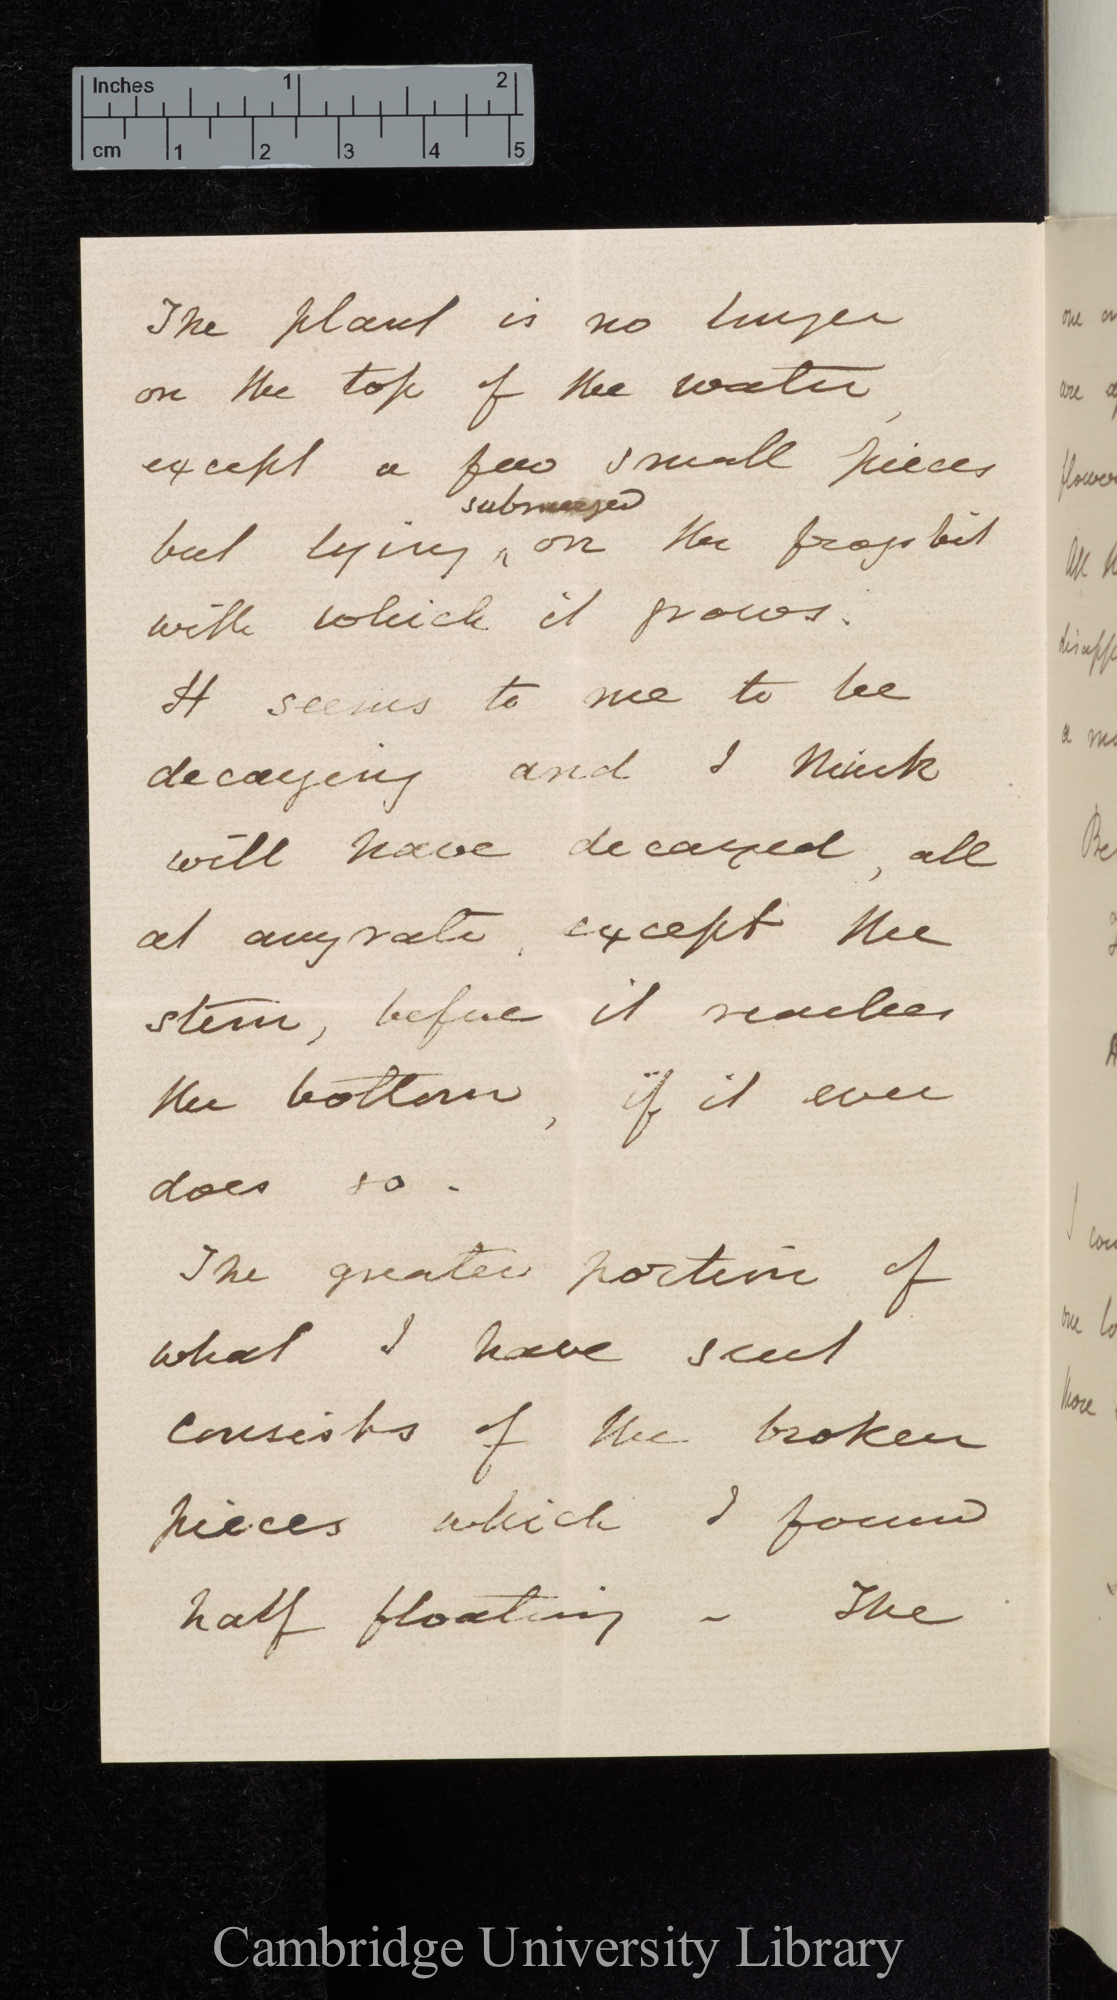 Inches 1 2
cm 1 2 3 4 5
The plant is no longer
on the top of the water,
except a few small pieces
submerged
but lying ^ on the frogsbit
with which it grows.
It seems to me to be
decaying and I think
will have decayed, all
at anyrate, except the
stem, before it reaches
the bottom, if it ever
does so.
The greater portion of
what I have sent
consists of the broken
pieces which I found
half floating – The
one
are
flower
All
disapp
a
Be
I
one
more
Cambridge University Library